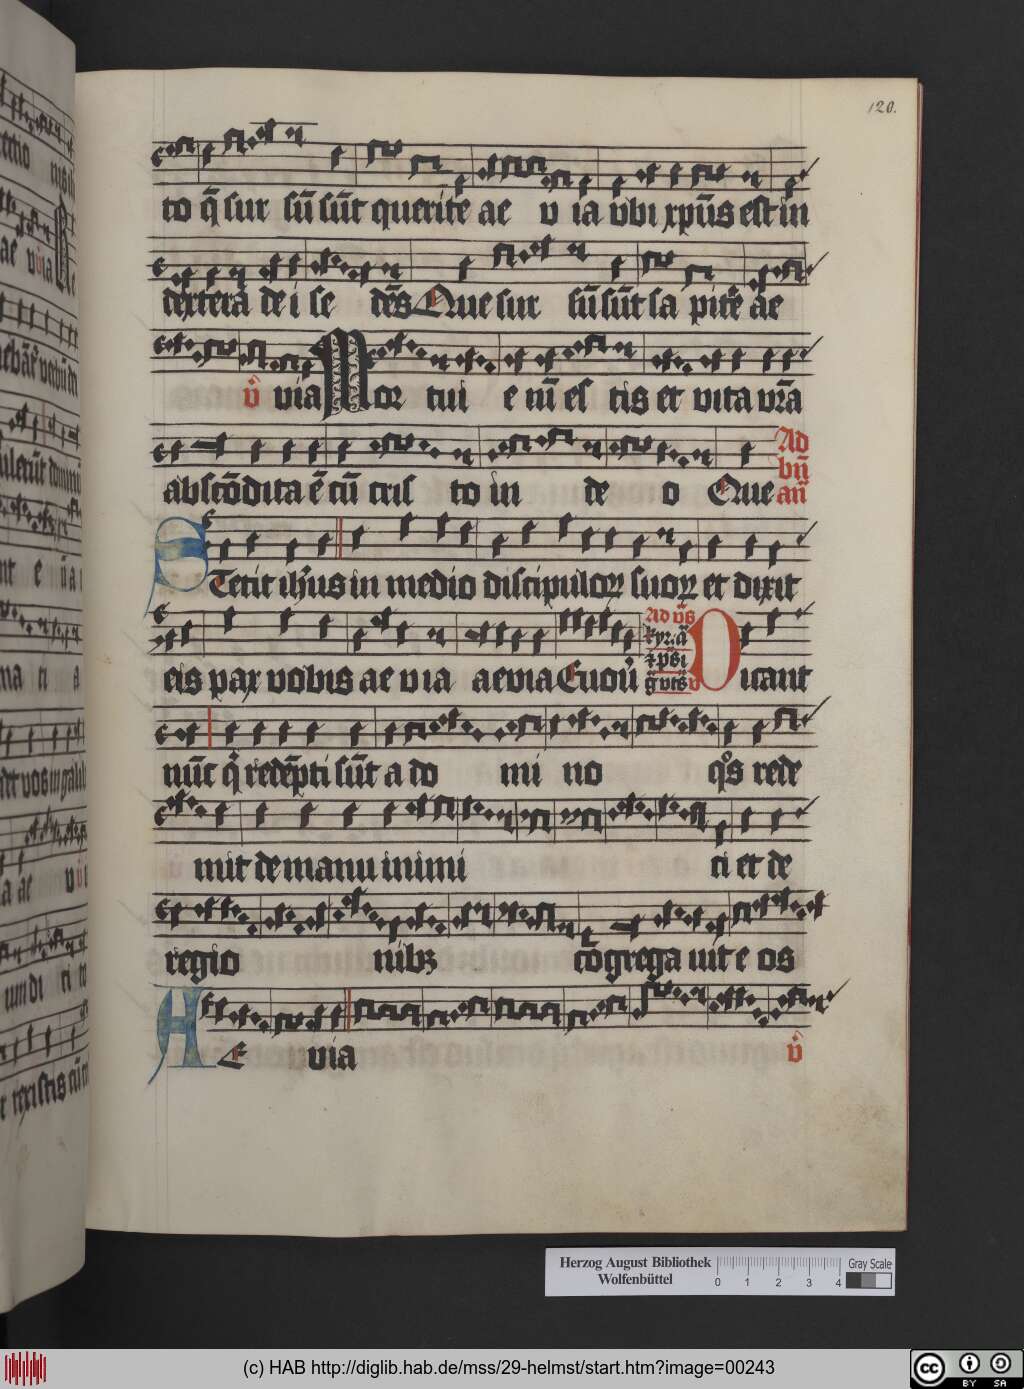 120.
to q̄ sur sū sūt querite ae v ia vbi xpūs est in
dextera dei se dēs Que sur sū sūt sapite ae
v̄ via Mor tui e nī es tis et vita vrā
abscōdita ē cū cris to in de o Que Ad bn̄ an̄
Stetit ihūs in medio discipuloꝝ suoꝝ et dixit
eis pax vobis ae via aevia Euou Ad Dicant
nūc q̄ redēpti sūt a do mi no q̄s rede
mit de manu inimi ci et de
regio nibꝫ cōgrega uit e os
AE via v̄
Herzog August Bibliothek
Wolfenbüttel
0 1 2 3 4
Gray Scale
(c) HAB http://diglib.hab.de/mss/29-helmst/start.htm?image=00243
cc BY SA